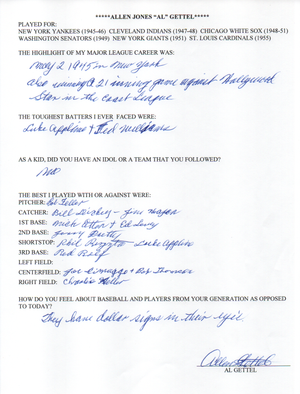 *****ALLEN JONES "AL" GETTEL*****
PLAYED FOR:
NEW YORK YANKEES (1945-46) CLEVELAND INDIANS (1947-48) CHICAGO WHITE SOX (1948-51)
WASHINGTON SENATORS (1949) NEW YORK GIANTS (1951) ST. LOUIS CARDINALS (1955)
THE HIGHLIGHT OF MY MAJOR LEAGUE CAREER WAS:
May 2 1945 in New York
also winning 21 inning game against Hollywood
Stars in the Coast League
THE TOUGHEST BATTERS I EVER FACED WERE:
Luke Appling & Ted Williams
AS A KID, DID YOU HAVE AN IDOL OR A TEAM THAT YOU FOLLOWED?
No
THE BEST I PLAYED WITH OR AGAINST WERE:
PITCHER: Bob Feller
CATCHER: Bill Dickey - Jim Hegan
1ST BASE: Nick Etten &
2ND BASE: Jerry
SHORTSTOP: Phil Rizzuto Luke Appling
3RD BASE: Red Rolfe
LEFT FIELD:
CENTERFIELD: Joe Dimaggio & Bob Thomson
RIGHT FIELD: Charlie Keller
HOW DO YOU FEEL ABOUT BASEBALL AND PLAYERS FROM YOUR GENERATION AS OPPOSED
TO TODAY?
They have dollar signs in their eyes
Allen Gettel
AL GETTEL